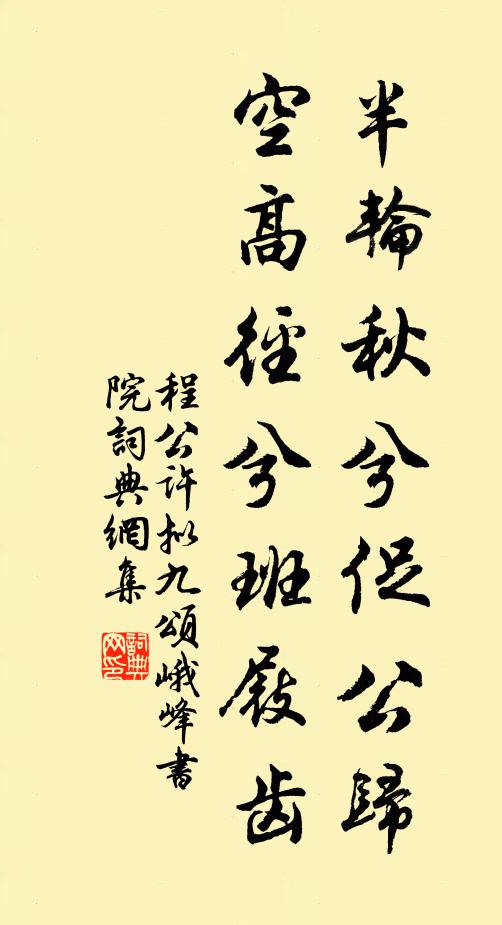 半輪秋兮促公歸
空高徑兮班屐齒
程公許拟九頌峨峰書
院詞典網集
詞典网印